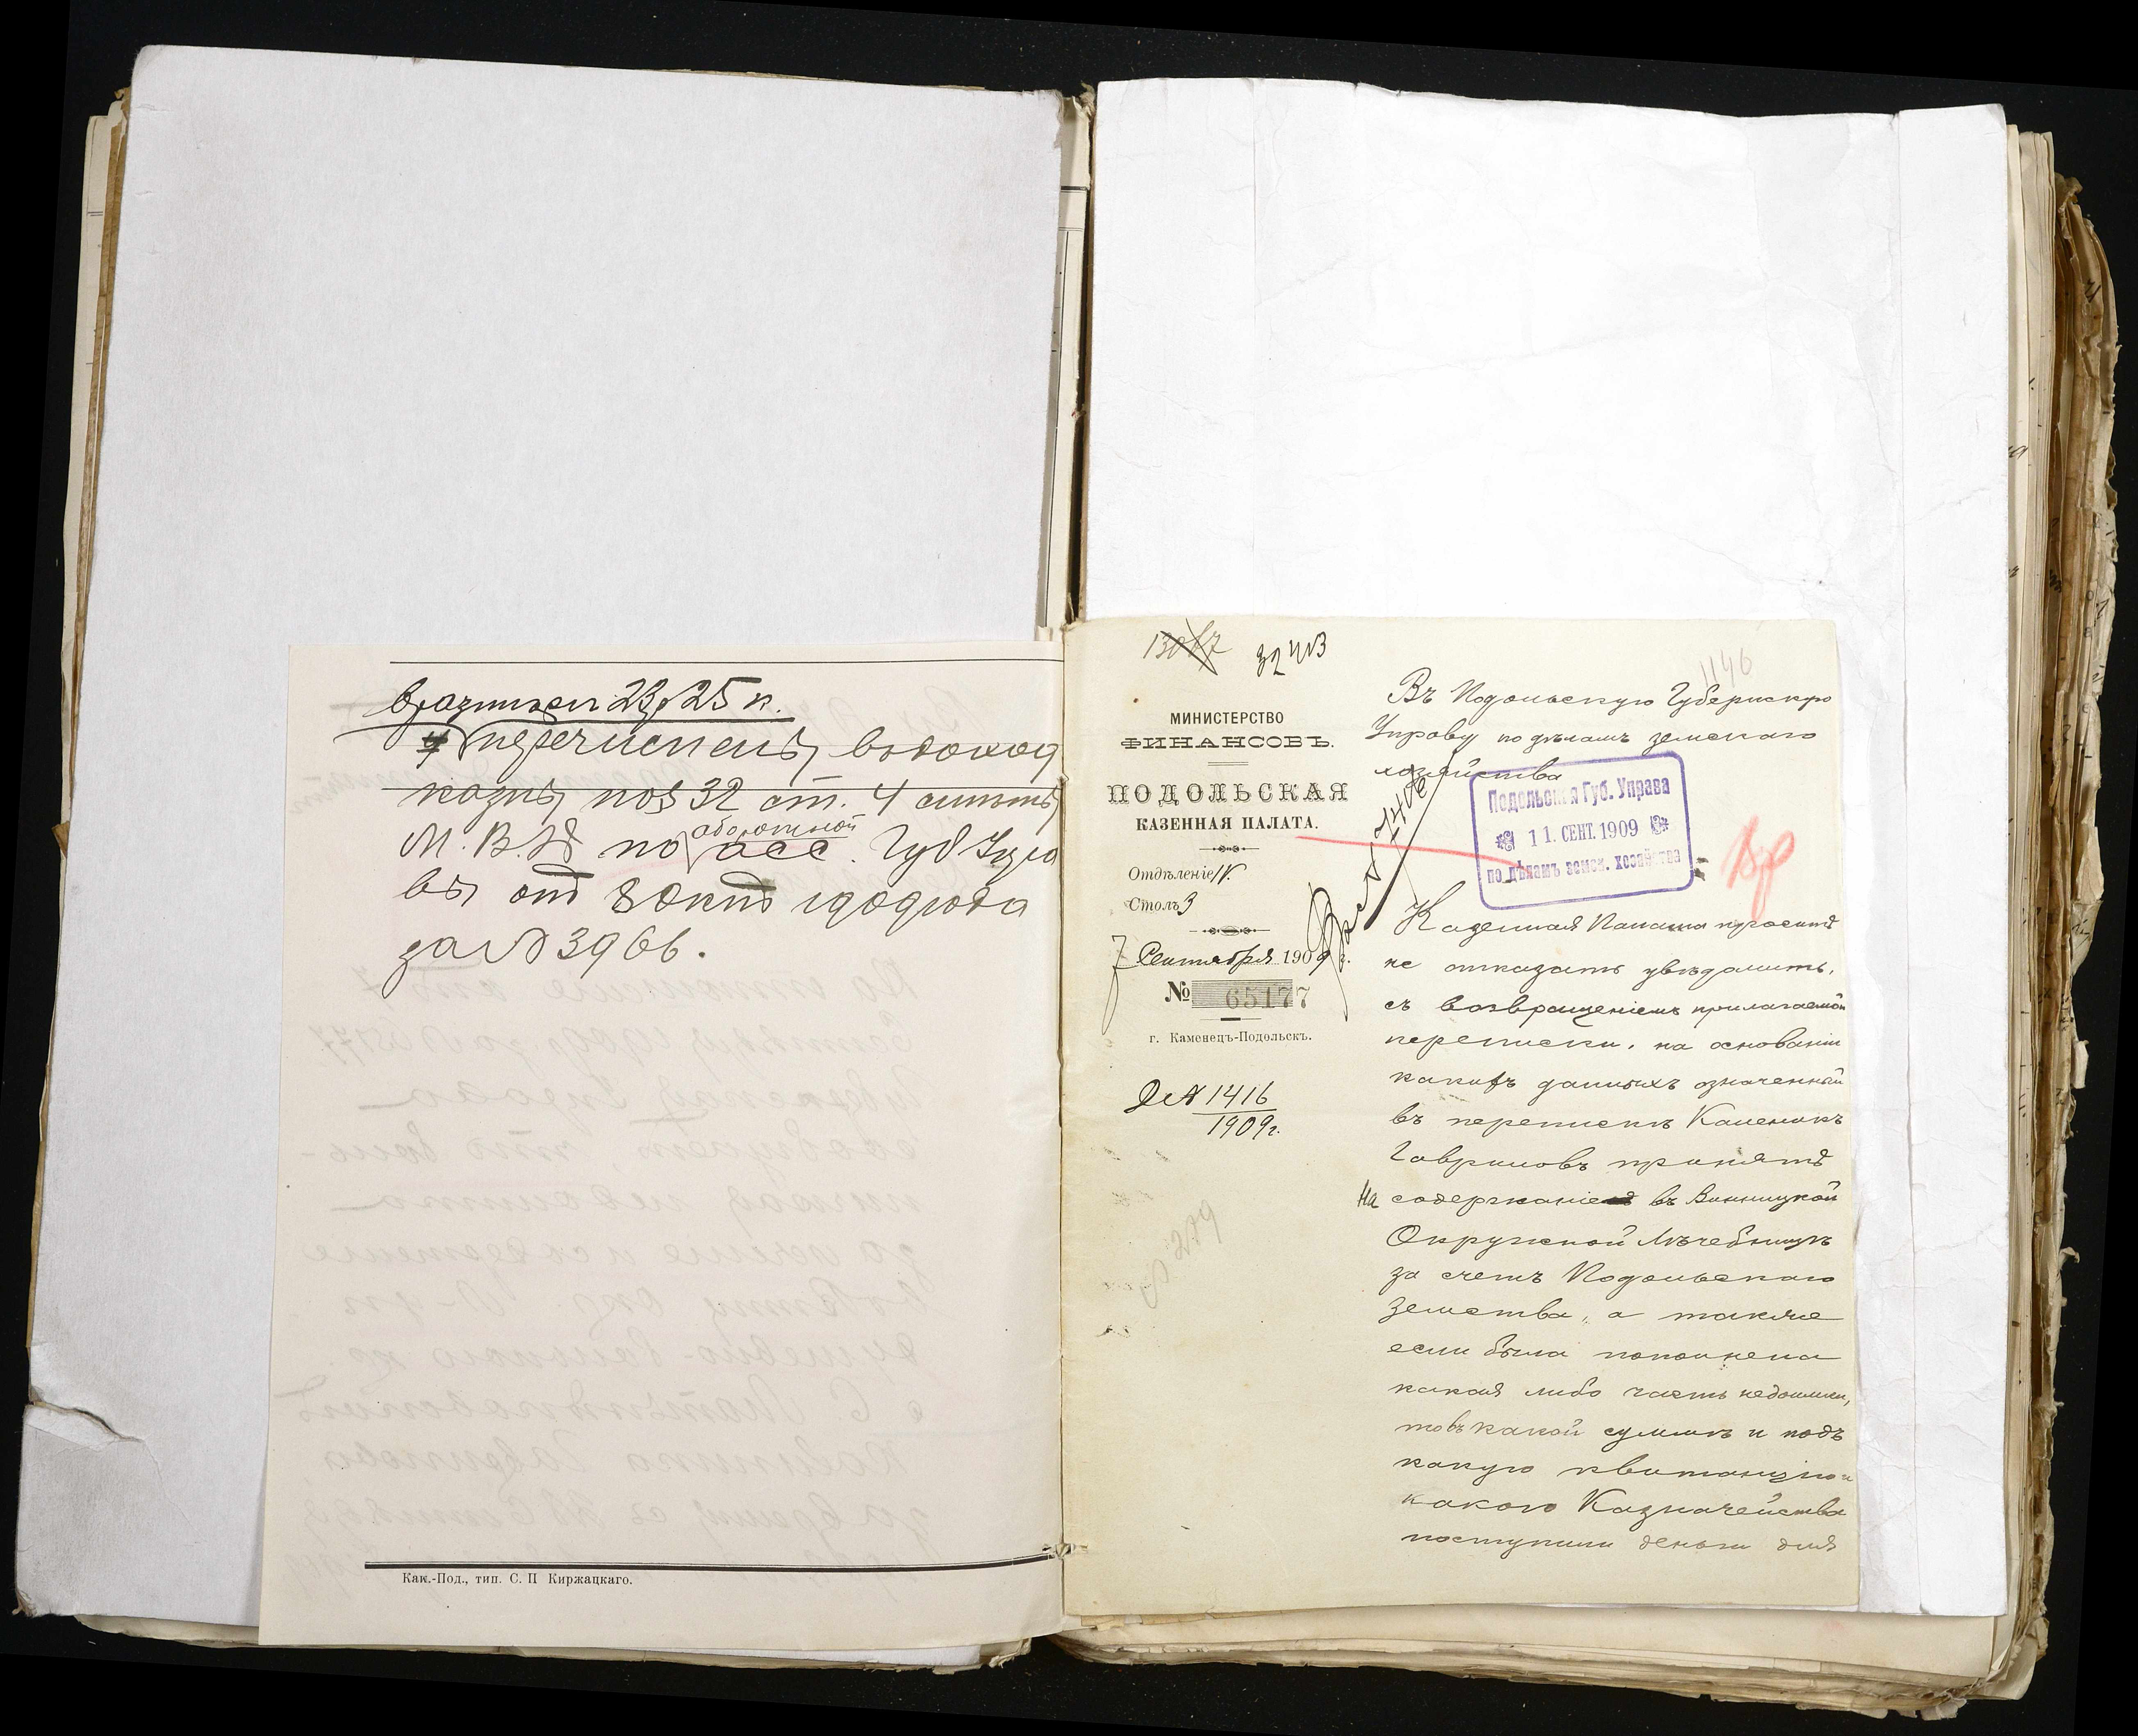 въ размѣрѣ 23 р 25 к.
перечислены въ доход
казны по § 32 ст. 4 смѣты
М. В. Д по оборотной
асс. Губ Упра
вы отъ 8 Окт 1909 года
за № 3966.
Кам.-Под., тип. С. П Киржацкаго.
13087
32413
1146
МИНИСТЕРСТВО
ФИНАНСОВЪ.
ПОДОЛЬСКАЯ
КАЗЕННАЯ ПАЛАТА.
Отдѣленіе IV.
Столъ 3
7 Сентября 1909 г.
№ 65177
г. Каменецъ-Подольскъ.
Д № 1416
1909 г.
Въ Подольскую Губернскую
Управу по дѣламъ земскаго
хозяйства
Подольская Губ. Управа
11. СЕНТ. 1909
по дѣламъ земск. хозяйства
Казенная Палата проситъ
не отказать увѣдомить,
съ возвращеніемъ прилагаемой
переписки, на основаніи
какихъ данныхъ означенный
въ перепискѣ Каленикъ
Гавриловъ принятъ
на содержаніе въ Винницкой
Окружной Лѣчебницѣ
за счетъ Подольскаго
Земства, а также
если была пополнена
какая либо часть недоимки,
то въ какой суммѣ и подъ
какую квитанцію и
какого Казначейства
поступили деньги для